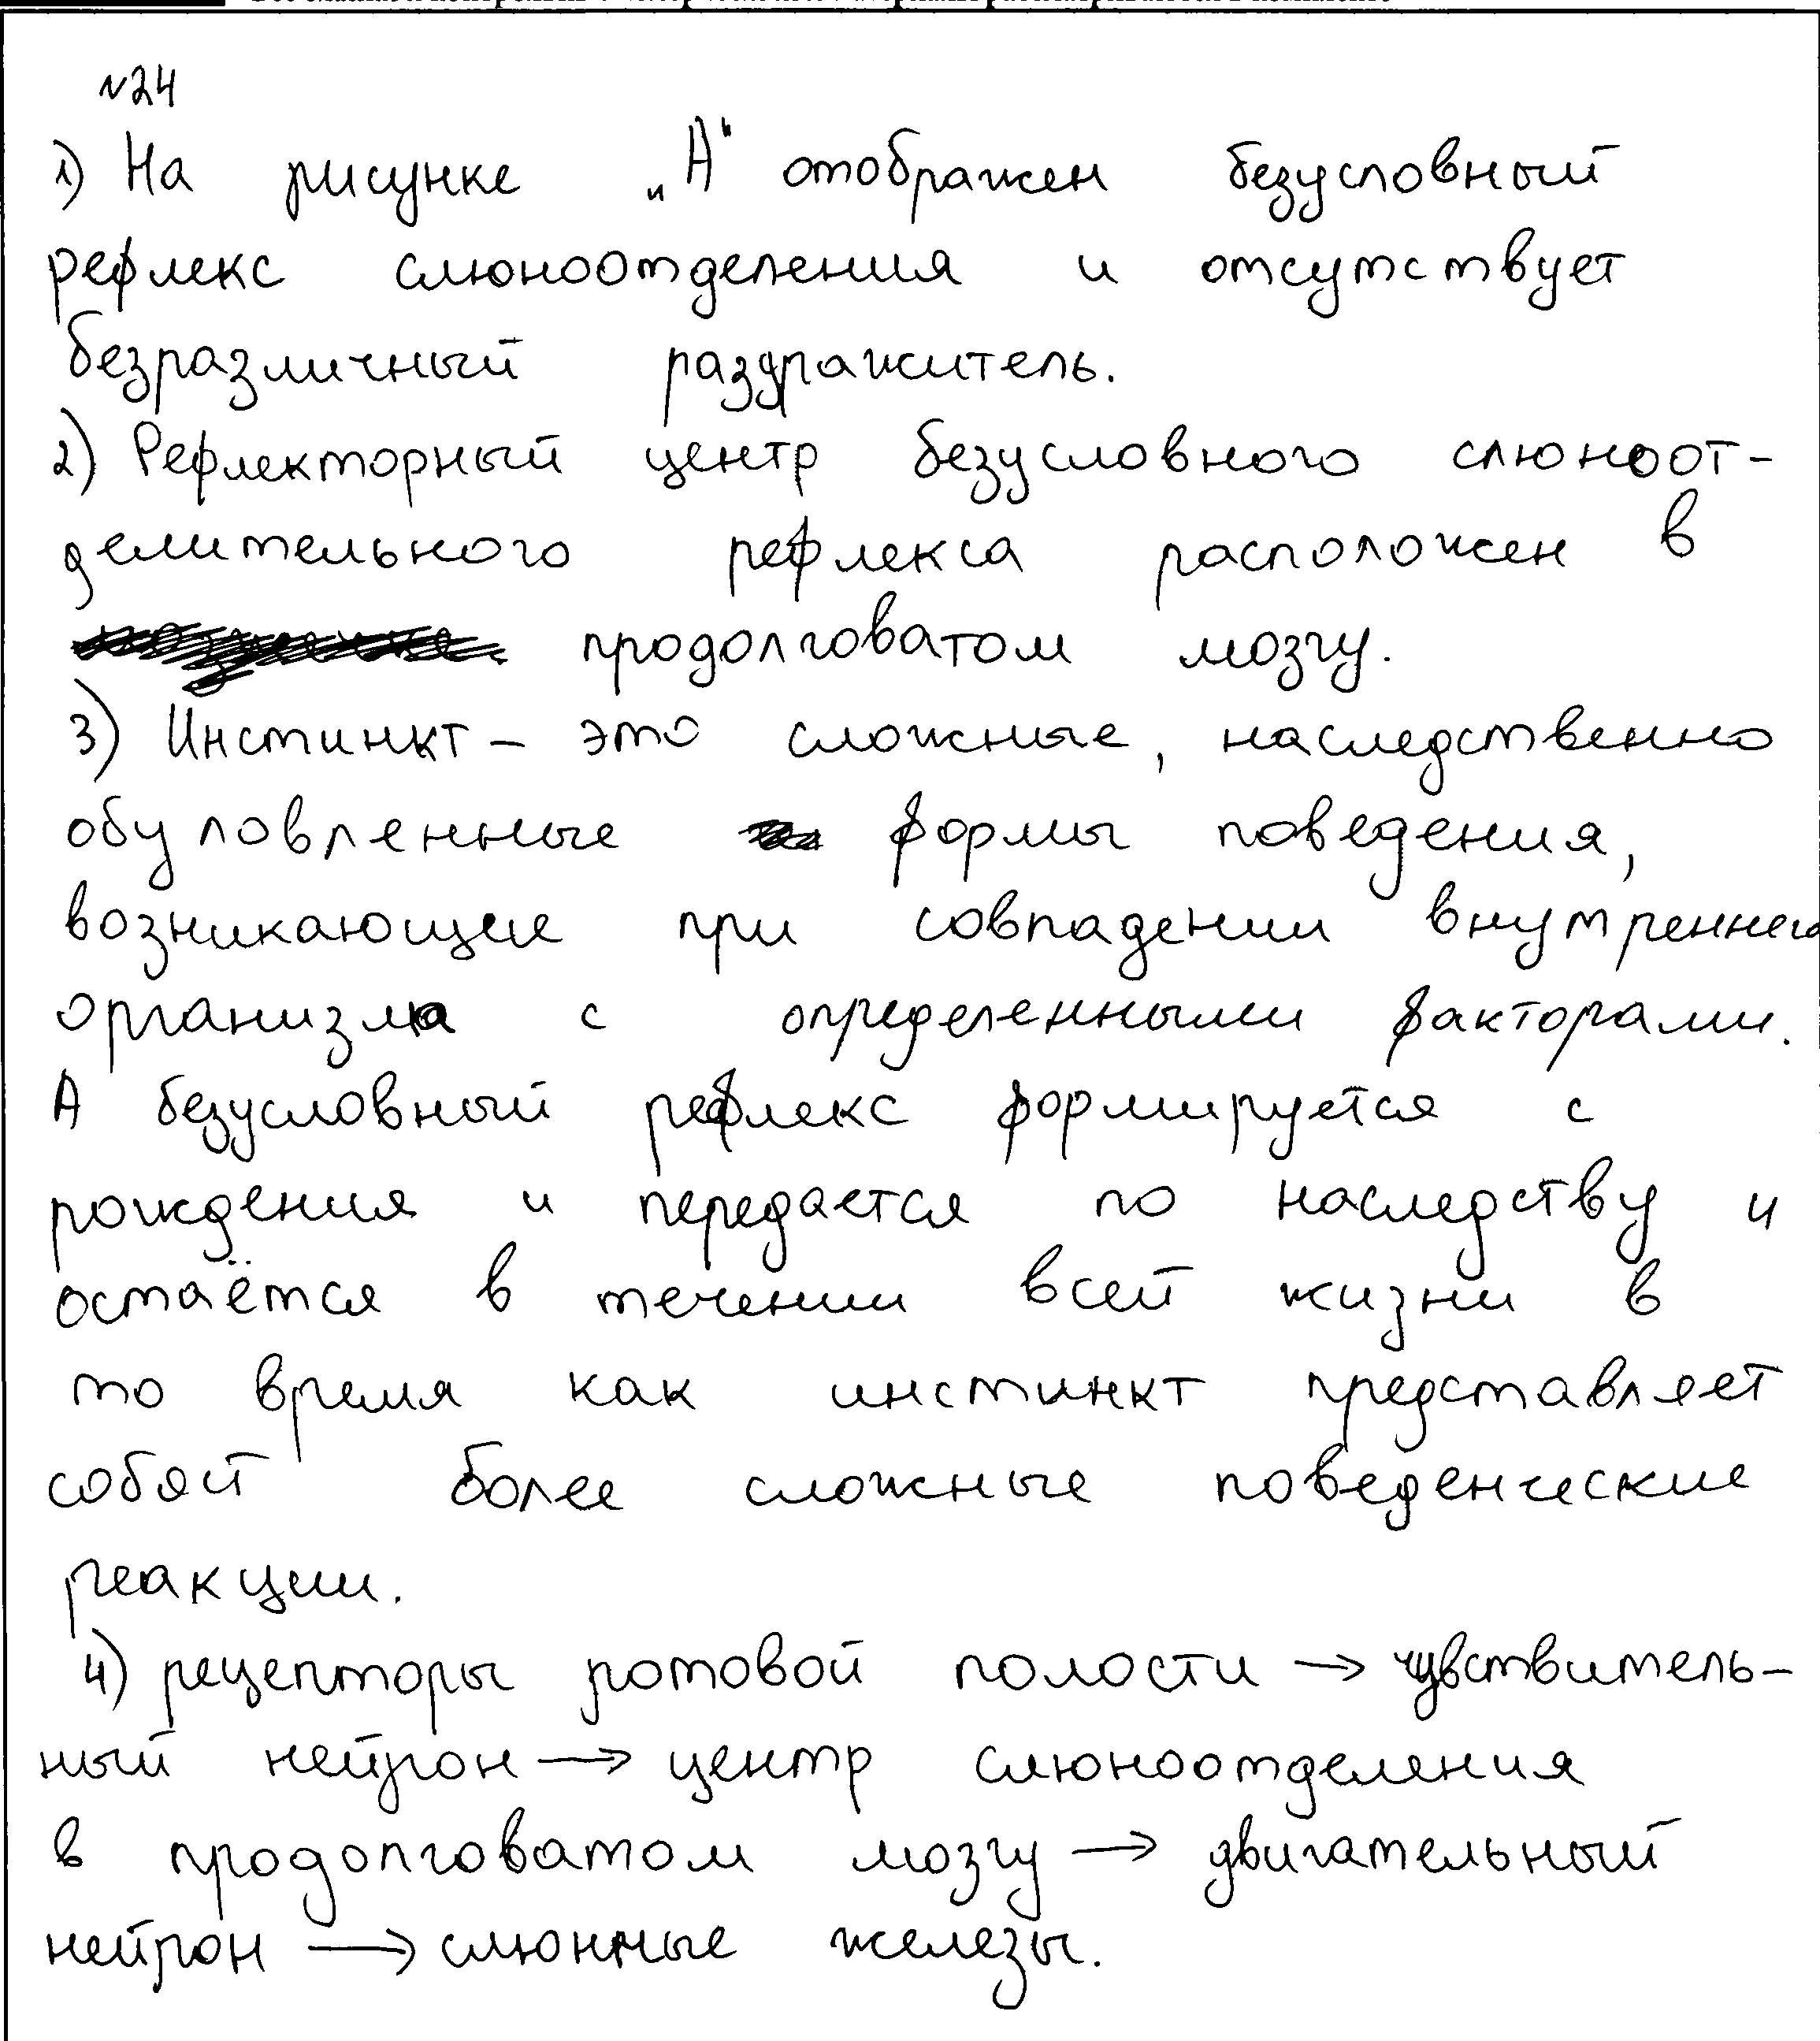 №24
1) На рисунке „А“ отображен безусловный
рефлекс слюноотделения и отсутствует
безразличный раздражитель.
2) Рефлекторный центр безусловного слюноот-
делительного рефлекса расположен в
продолговатом мозгу.
3) Инстинкт – это сложные, наследственно
обуловленные формы поведения,
возникающие при совпадении внутреннего
организма с определенными факторами.
А безусловный рефлекс формируется с
рождения и передается по наследству и
остаётся в течении всей жизни в
то время как инстинкт представляет
собой более сложные поведенческие
реакции.
4) рецепторы ротовой полости → чувствитель-
ный нейрон → центр слюноотделения
в продолговатом мозгу → двигательный
нейрон → слюнные железы.